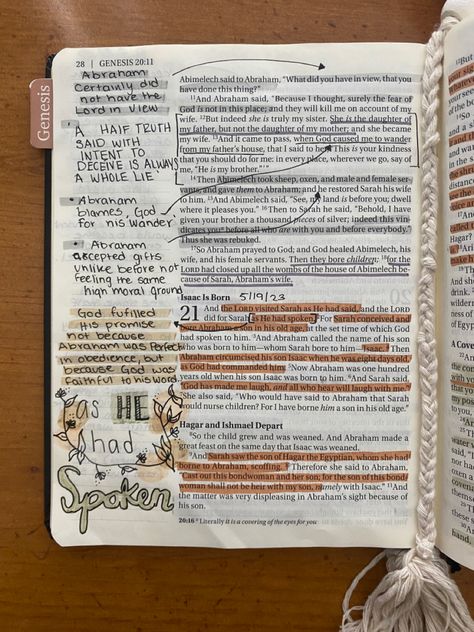 28 | GENESIS 20:11
Genesis
Abraham
Certainly did
not have the
Lord in view
• A HALF TRUTH
SAID WITH
INTENT TO
DECEIVE IS ALWAYS
A WHOLE LIE
• Abraham
blames God
for his wander
• Abraham
accepted gifts
unlike before not
feeling the same
high moral ground
God fufilled
His promise
not because
Abraham was Perfect
in obedience, but
because God was
faithful to his word
as HE
had
Spoken
Abimelech said to Abraham, “What did you have in view, that you
have done this thing?”
11And Abraham said, “Because I thought, surely the fear of
God is not in this place; and they will kill me on account of my
wife. 12But indeed she is truly my sister. She is the daughter of
my father, but not the daughter of my mother; and she became
my wife. 13And it came to pass, when God caused me to wander
from my father's house, that I said to her, ‘This is your kindness
that you should do for me: in every place, wherever we go, say of
me, “He is my brother.” ’ ”
14Then Abimelech took sheep, oxen, and male and female ser-
vants, and gave them to Abraham; and he restored Sarah his wife
to him. 15And Abimelech said, “See, my land is before you; dwell
where it pleases you.” 16Then to Sarah he said, “Behold, I have
given your brother a thousand pieces of silver; indeed this vin-
dicates you a before all who are with you and before everybody.”
Thus she was rebuked.
17So Abraham prayed to God; and God healed Abimelech, his
wife, and his female servants. Then they bore children; 18for the
LORD had closed up all the wombs of the house of Abimelech be-
cause of Sarah, Abraham's wife.
Isaac Is Born 5/9/23
21 And the LORD visited Sarah as He had said, and the LORD
did for Sarah as He had spoken. 2For Sarah conceived and
bore Abraham a son in his old age, at the set time of which God
had spoken to him. 3And Abraham called the name of his son
who was born to him—whom Sarah bore to him—Isaac. 4Then
Abraham circumcised his son Isaac when he was eight days old,
as God had commanded him. 5Now Abraham was one hundred
years old when his son Isaac was born to him. 6And Sarah said,
“God has made me laugh, and all who hear will laugh with me.”
7She also said, “Who would have said to Abraham that Sarah
would nurse children? For I have borne him a son in his old age.”
Hagar and Ishmael Depart
8So the child grew and was weaned. And Abraham made a
great feast on the same day that Isaac was weaned.
9And Sarah saw the son of Hagar the Egyptian, whom she had
borne to Abraham, scoffing. 10Therefore she said to Abraham,
“Cast out this bondwoman and her son; for the son of this bond-
woman shall not be heir with my son, namely with Isaac.” 11And
the matter was very displeasing in Abraham's sight because of
his son.
20:16 a Literally it is a covering of the eyes for you